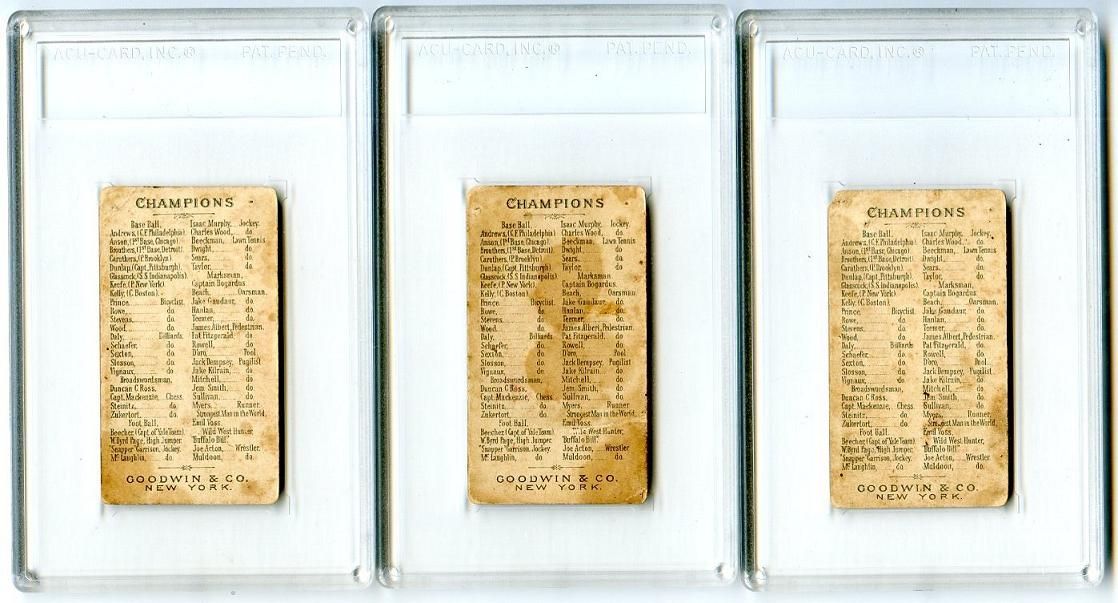 ACU-CARD, INC.® PAT. PEND.
CHAMPIONS
Base Ball, Isaac Murphy, Jockey.
Andrews, (C.F. Philadelphia). Charles Wood, do.
Anson, (1st Base, Chicago). Beeckman, Lawn Tennis
Brouthers, (1st Base, Detroit). Dwight, do.
Caruthers, (P. Brooklyn) Sears, do.
Dunlap, (Capt. Pittsburgh). Taylor, do.
Glasscock, (S.S. Indianapolis). Marksman,
Keefe, (P. New York) Captain Bogardus.
Kelly, (C. Boston). Beach, Oarsman.
Prince, Bicyclist. Jake Gaudaur, do.
Rowe, do. Hanlan, do.
Stevens, do. Teemer, do.
Wood, do. James Albert, Pedestrian.
Daly, Billiards Pat Fitzgerald, do.
Schaefer, do. Rowell, do.
Sexton, do. D'oro, Pool
Slosson, do. Jack Dempsey, Pugilist
Vignaux, do. Jake Kilrain, do.
Broadswordsman, Mitchell, do.
Duncan C Ross, Jem. Smith, do.
Capt. Mackenzie, Chess. Sullivan, do.
Steinitz, do. Myers, Runner.
Zukertort, do. Strongest Man in the World,
Foot Ball, Emil Voss.
Beecher (Capt. of Yale Team). Wild West Hunter,
W. Byrd Page, High Jumper. "Buffalo Bill"
"Snapper" Garrison, Jockey. Joe Acton, Wrestler.
Mc Laughlin, do. Muldoon, do.
GOODWIN & CO.
NEW YORK.
ACU-CARD, INC.® PAT. PEND.
CHAMPIONS
Base Ball, Isaac Murphy, Jockey.
Andrews, (C.F. Philadelphia). Charles Wood, do.
Anson, (1st Base, Chicago). Beeckman, Lawn Tennis
Brouthers, (1st Base, Detroit). Dwight, do.
Caruthers, (P. Brooklyn) Sears, do.
Dunlap, (Capt. Pittsburgh). Taylor, do.
Glasscock, (S.S. Indianapolis). Marksman.
Keefe, (P. New York) Captain Bogardus.
Kelly, (C. Boston) Beach, Oarsman.
Prince, Bicyclist. Jake Gaudaur, do.
Rowe, do. Hanlan, do.
Stevens, do. Teemer, do.
Wood, do. James Albert, Pedestrian.
Daly, Billiards Pat Fitzgerald, do.
Schaefer, do. Rowell, do.
Sexton, do. D'oro, Pool
Slosson, do. Jack Dempsey, Pugilist
Vignaux, do. Jake Kilrain, do.
Broadswordsman, Mitchell, do.
Duncan C Ross, Jem. Smith, do.
Capt. Mackenzie, Chess Sullivan, do.
Steinitz, do. Myers, Runner.
Zukertort, do. Strongest Man in the World,
Foot Ball, Emil Voss.
Beecher (Capt. of Yale Team). West Hunter,
W. Byrd Page, High Jumper. "Buffalo Bill"
"Snapper" Garrison, Jockey. Joe Acton, Wrestler
Mc Laughlin, do. Muldoon, do.
GOODWIN & CO.
NEW YORK.
ACU-CARD, INC.® PAT. PEND.
CHAMPIONS
Base Ball, Isaac Murphy, Jockey.
Andrews, (C.F. Philadelphia) Charles Wood, do.
Anson, (1st Base, Chicago) Beeckman, Lawn Tennis
Brouthers, (1st Base, Detroit). Dwight, do.
Caruthers, (P. Brooklyn) Sears, do.
Dunlap, (Capt. Pittsburgh) Taylor, do.
Glasscock, (S.S. Indianapolis). Marksman,
Keefe, (P. New York) Captain Bogardus.
Kelly, (C. Boston). Beach, Oarsman.
Prince, Bicyclist. Jake Gaudaur, do.
Rowe, do. Hanlan, do.
Stevens, do. Teemer, do.
Wood, do. James Albert, Pedestrian.
Daly, Billiards Pat Fitzgerald, do.
Schaefer, do. Rowell, do.
Sexton, do. D'oro, Pool
Slosson, do. Jack Dempsey, Pugilist.
Vignaux, do. Jake Kilrain, do.
Broadswordsman, Mitchell, do.
Duncan C Ross, Jem Smith, do.
Capt. Mackenzie, Chess. Sullivan, do.
Steinitz, do. Myers, Runner.
Zukertort, do. Strongest Man in the World,
Foot Ball, Emil Voss.
Beecher (Capt. of Yale Team). Wild West Hunter,
W. Byrd Page, High Jumper. "Buffalo Bill"
"Snapper" Garrison, Jockey. Joe Acton, Wrestler.
Mc Laughlin, do. Muldoon, do.
GOODWIN & CO.
NEW YORK.